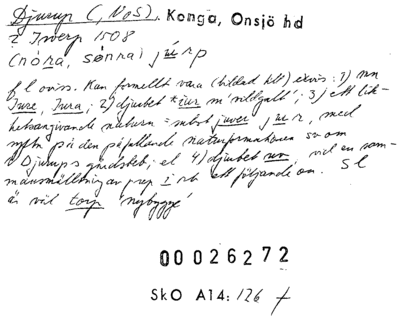 Djurup (, N o S). Konga, Onsjö hd
i Iwerp 1508
(nora, sønna) júrp
f l ovisst. Kan formellt vara (bildad till) exvis: 1) mn
Iure, Iura; 2) djurbet *iur m 'vildgalt'; 3) ett lik-
hetsangivande naturn = subst juver júr, med
syftn på den påfallande naturformationen sv om
Djurups gårdsbeb; el 4) djurbet ur, vid en sam-
mansmältning av prep i och ett följande on. Sl
är väl torp 'nybygge'
00026272
SkO A14: 126